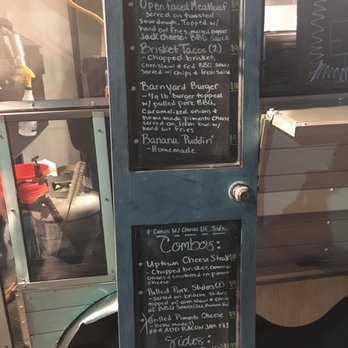 Open faced Meatloaf
Served on toasted
sourdough. Topped w/
hand cut fries, melted pepper
Jack cheese + BBQ sauce
Brisket Tacos (2)
- Chopped brisket,
cornslaw + red BBQ sauce
Served w/ Chips + fresh Salsa
Barnyard Burger
- 1/4 lb burger topped
w/ pulled pork BBQ,
Caramelized onions +
homemade pimento cheese
served on fresh bun w/
hand cut fries
Banana Puddin'
- Homemade
* Comes w/ Choice Of Side
Combos:
Uptown Cheese Steak
- Chopped brisket
onions + smothered in pimento
cheese
Pulled Pork Sliders (2)
- Served on brioche sliders
topped w/
Grilled Pimento Cheese
- homemade!!
ADD BACON JAM +$1
Sides: